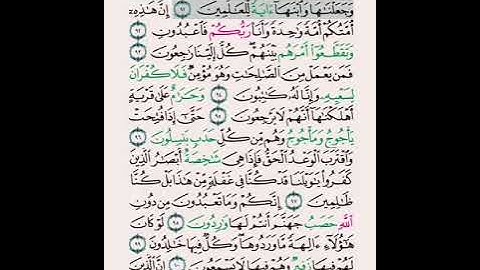 وَجَعَلْنَٰهَا وَٱبْنَهَآ ءَايَةً لِّلْعَٰلَمِينَ ٩١ إِنَّ هَٰذِهِۦٓ
أُمَّتُكُمْ أُمَّةً وَٰحِدَةً وَأَنَا۠ رَبُّكُمْ فَٱعْبُدُونِ ٩٢
وَتَقَطَّعُوٓا۟ أَمْرَهُم بَيْنَهُمْ كُلٌّ إِلَيْنَا رَٰجِعُونَ ٩٣
فَمَن يَعْمَلْ مِنَ ٱلصَّٰلِحَٰتِ وَهُوَ مُؤْمِنٌ فَلَا كُفْرَانَ
لِسَعْيِهِۦ وَإِنَّا لَهُۥ كَٰتِبُونَ ٩٤ وَحَرَٰمٌ عَلَىٰ قَرْيَةٍ
أَهْلَكْنَٰهَآ أَنَّهُمْ لَا يَرْجِعُونَ ٩٥ حَتَّىٰٓ إِذَا فُتِحَتْ
يَأْجُوجُ وَمَأْجُوجُ وَهُم مِّن كُلِّ حَدَبٍ يَنسِلُونَ ٩٦
وَٱقْتَرَبَ ٱلْوَعْدُ ٱلْحَقُّ فَإِذَا هِىَ شَٰخِصَةٌ أَبْصَٰرُ ٱلَّذِينَ
كَفَرُوا۟ يَٰوَيْلَنَا قَدْ كُنَّا فِى غَفْلَةٍ مِّنْ هَٰذَا بَلْ كُنَّا
ظَٰلِمِينَ ٩٧ إِنَّكُمْ وَمَا تَعْبُدُونَ مِن دُونِ
ٱللَّهِ حَصَبُ جَهَنَّمَ أَنتُمْ لَهَا وَٰرِدُونَ ٩٨ لَوْ كَانَ
هَٰٓؤُلَآءِ ءَالِهَةً مَّا وَرَدُوهَا وَكُلٌّ فِيهَا خَٰلِدُونَ ٩٩
لَهُمْ فِيهَا زَفِيرٌ وَهُمْ فِيهَا لَا يَسْمَعُونَ ١٠٠ إِنَّ ٱلَّذِينَ